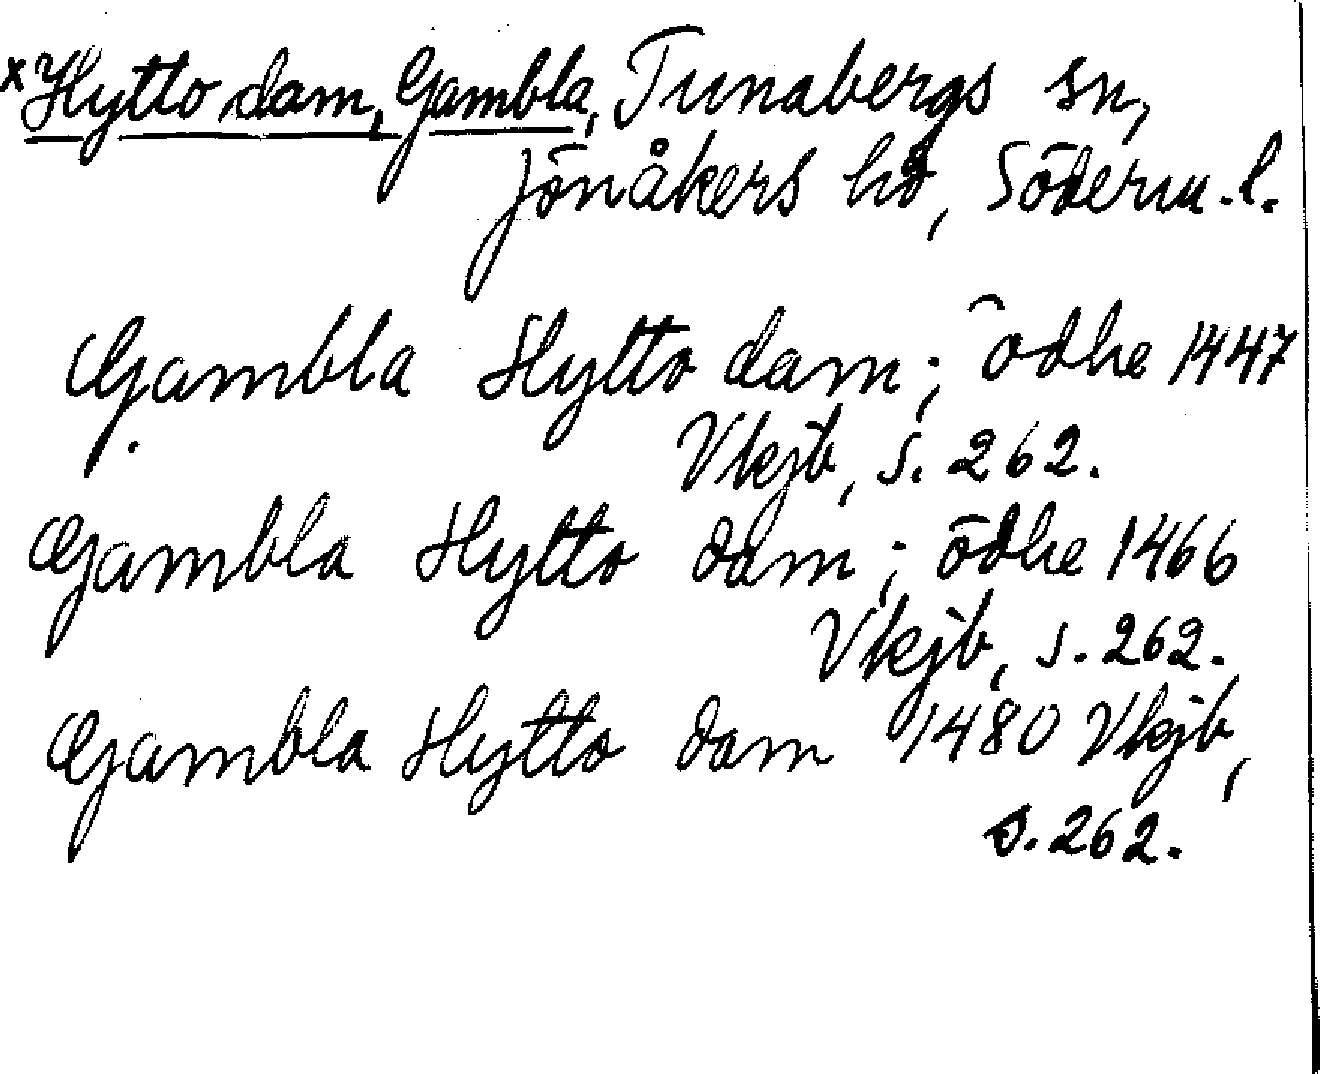 xHytto dam, Gambla, Tunabergs sn,
Jönåkers hd, Söderm.l.
Gambla Hytto dam; ödhe 1447
Vkjb, s. 262.
Gambla Hytto dam; ödhe 1466
Vkjb, s. 262.
Gambla Hytto dam 1480 Vkjb,
s. 262.